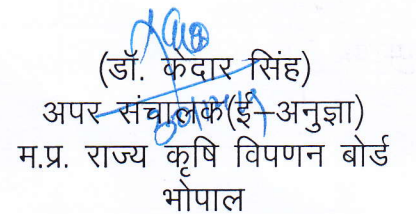 (डॉ. केदार सिंह)
अपर संचालक(ई–अनुज्ञा)
म.प्र. राज्य कृषि विपणन बोर्ड
भोपाल